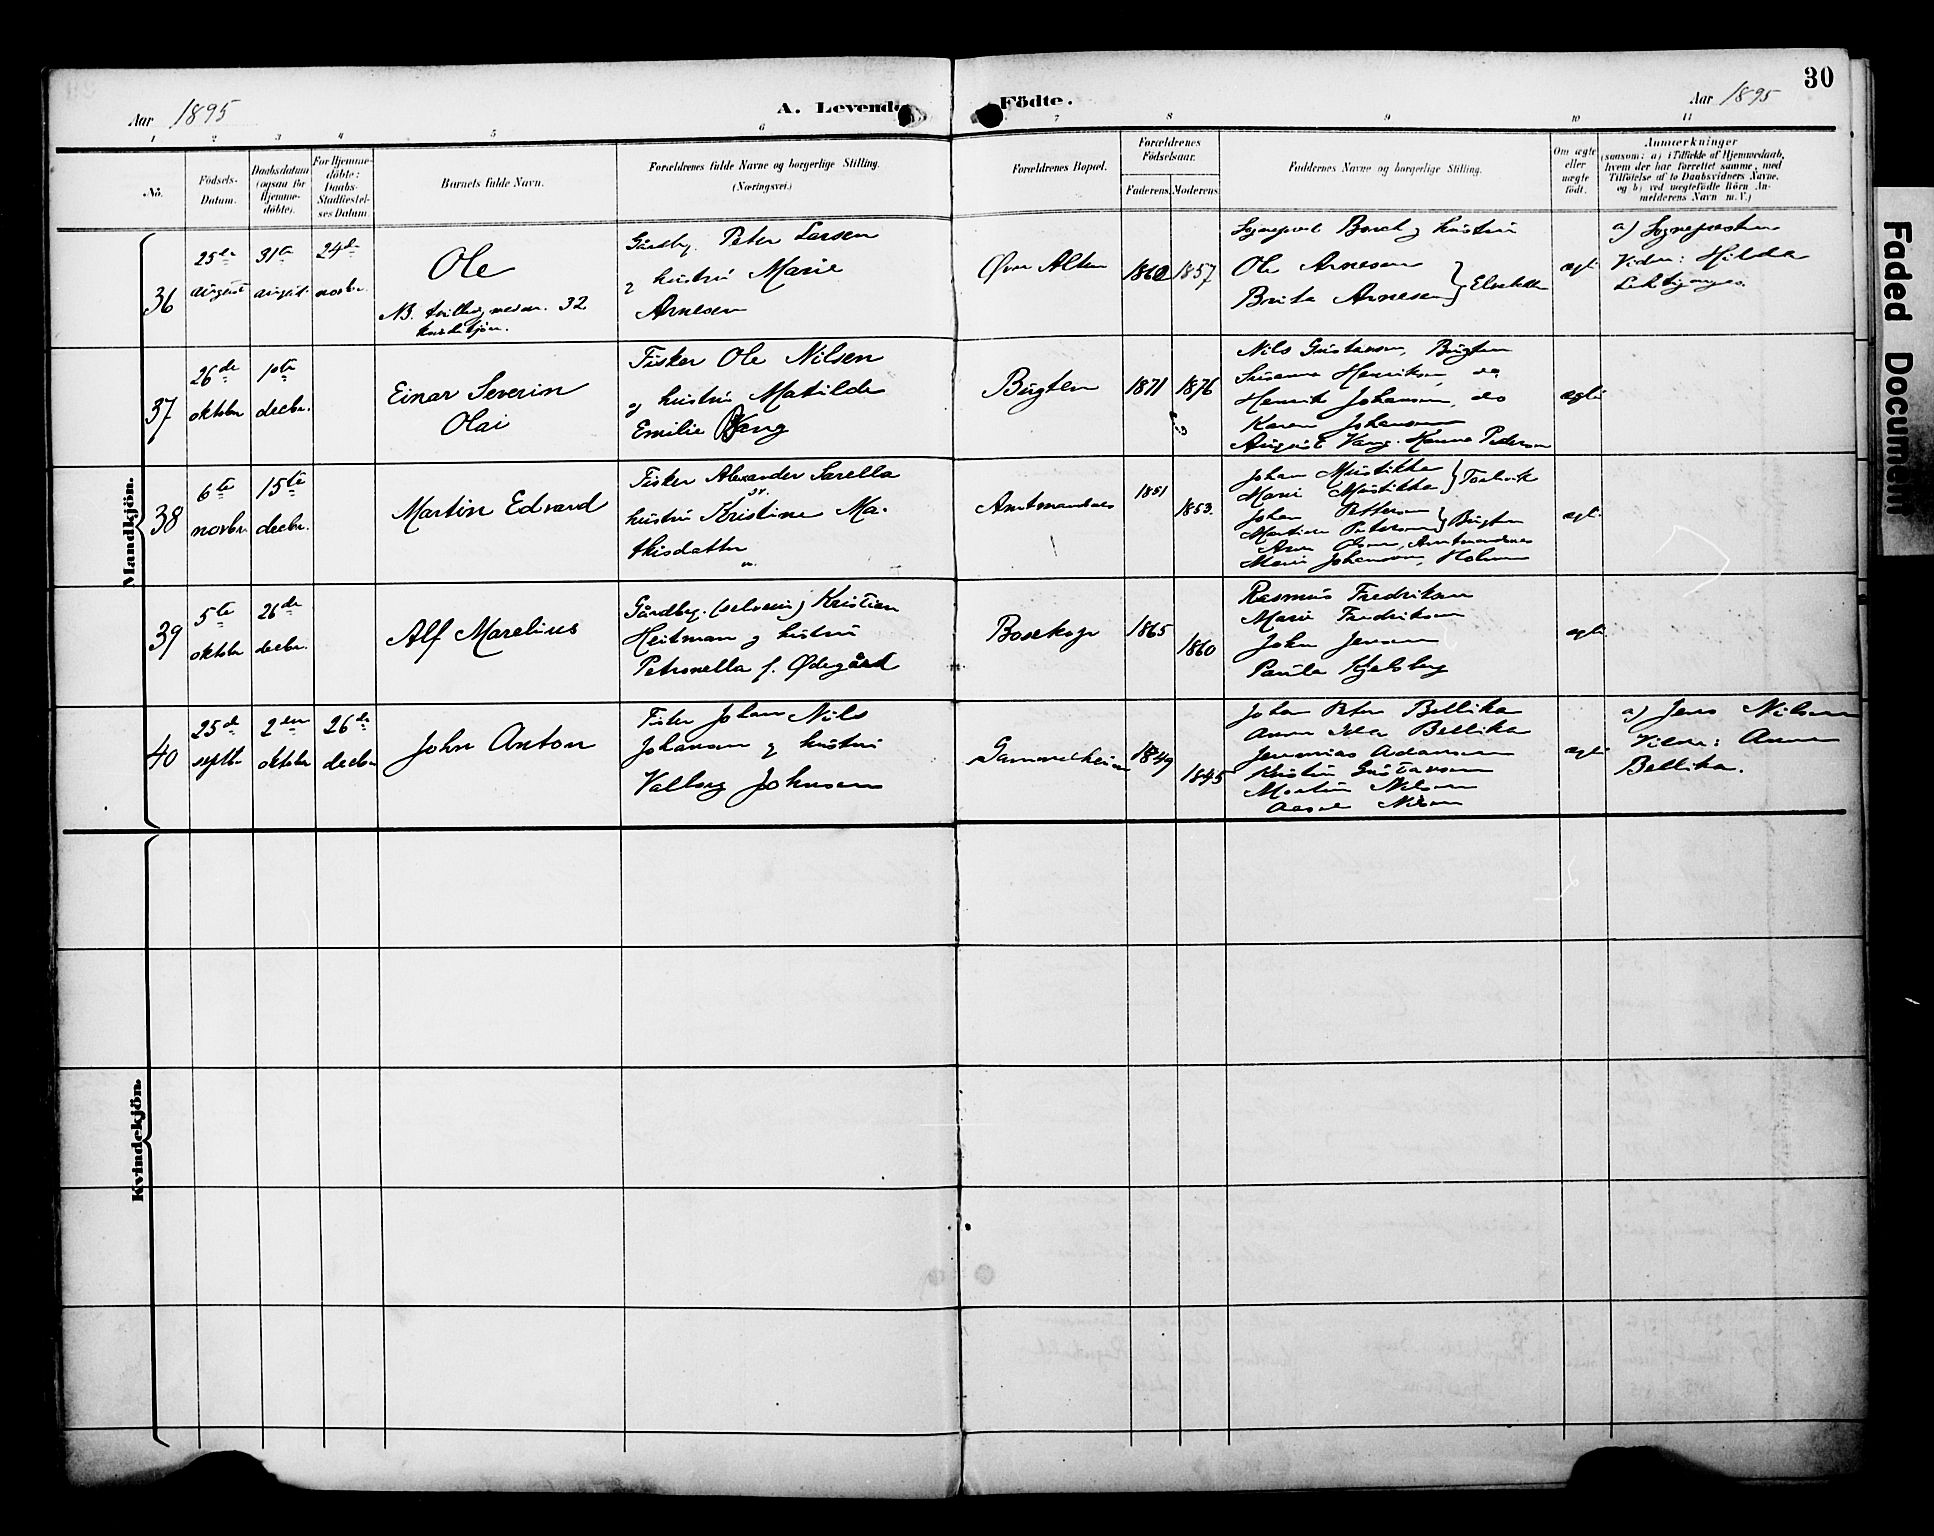 30
Aar 1895
A. Levende Födte.
Aar 1895
1 2 3 4 5 6 7 8 9 10 11
No.
Födsels-Datum.
Daabsdatum (ogsaa for Hjemme-döbte).
For Hjemme-döbte: Daabs-Stadfæstel-ses Datum
Barnets fulde Navn.
Forældrenes fulde Navne og borgerlige Stilling.
(Næringsvei.)
Forældrenes Bopæl.
Forældrenes Födselsaar.
Faderens. Moderens.
Faddernes Navne og borgerlige Stilling.
Om ægte eller uægte födt.
Anmærkninger
(saasom: a) i Tilfælde af Hjemmedaab,
hvem der har forrettet samme, med
Tilföielse af to Daabsvidners Navne,
og b) ved uegtefödte Börn An-
melderens Navn m. V.)
Mandkjön.
36
25de august
31te august
24de novbr.
Ole
NB. tvilling med nr. 32
kvindekjön.
Gårdbr. Peter Larsen
og hustru Marie
Arnesen
Øvre Alten
1860
1857
Sogneprest Borch og hustru
Ole Arnesen
Brita Arnesen } Elvebakken
ægte
a) Sognepresten
Vidne: Hilda
37
26de oktobr
1ste decbr.
Einar Severin
Olai
Fisker Ole Nilsen
og hustru Matilde
Emilie Vang
Bugten
1871
1876
Nils Gustavsen, Bugten
Susanna Henriksen, do
Henrik Johansen, do
Karen Johansen
August Vang. Hanna Pedersen
ægte
38
6te novbr
15de decbr.
Martin Edvard
Fisker Alexander Sarella
hustru Kristine Ma-
thisdatter
Amtmandsnes
1851
1853.
Johan Mustikka
Marie Mustikka } Talvik
Johan Pettersen
Martine Petersen } Bugten
Arne Olsen, Amtmandsnes
Marie Johansen, Holmen
ægte
39
5te oktobr
26de decbr.
Alf Marelius
Gårdbr. (selveier) Kristian
Heitman og hustru
Petronella f. Ødegård
Bosekop
1865
1860
Rasmus Fredriksen
Marie Fredriksen
John Jensen
Paula Kjelsberg
ægte
40
25de septbr
2den oktobr
26de decbr
John Anton
Fisker Johan Nils
Johansen og hustru
Valborg Johnsen
Gammelheimen
1849
1845
Johan Peter Bellika
Anna Isla Bellika
Jeremias Adamsen
Kristin Gustavsen
Martin Nilsen
Nilsen
ægte
a) Jens Nilsen
Vidne: Anna
Bellika.
Kvindekjön.
Faded Document